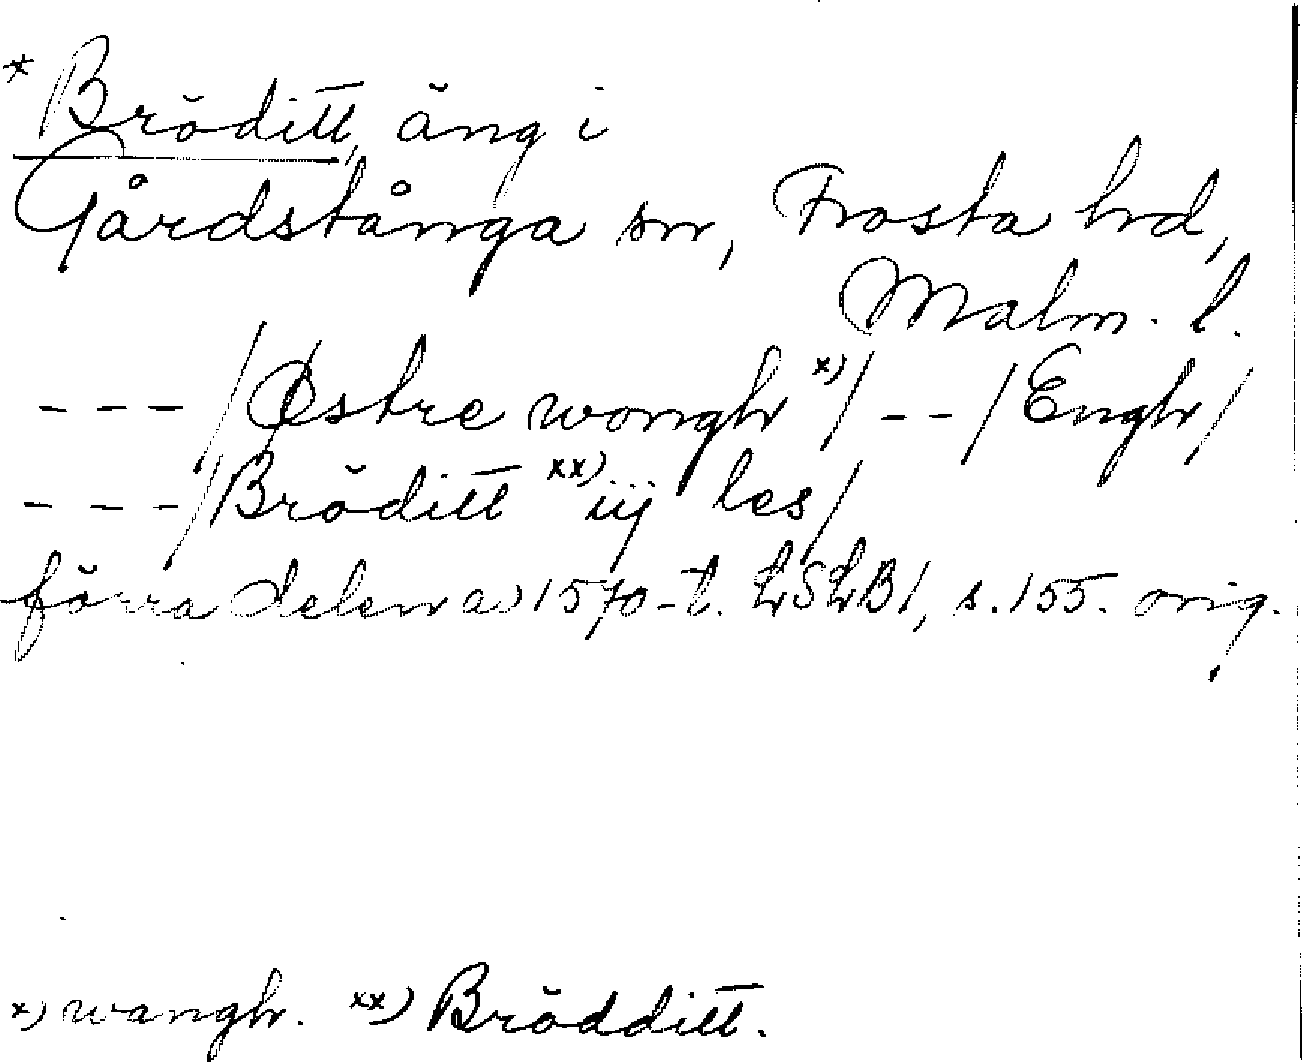 * Bröditt, äng i
Gårdstånga sn, Frosta hd,
Malm. l.
- - - / Østre wongh x) / - - / Engh /
- - - / Bröditt xx) iij les /
förra delen av 1570-t. LSLB 1, s. 155. orig.
x) wangh. xx) Brödditt.